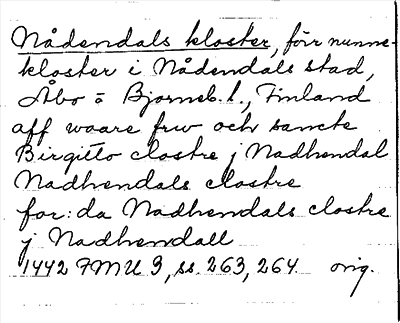 Nådendals kloster, förr nunne-
kloster i Nådendals stad,
Åbo o Bjorneb. l., Finland
aff waare frw och sancte
Birgitto clostre j Nadhendal
Nadhendals clostre
for: da Nadhendals clostre
j Nadhendall
1442 FMU 3, ss. 263, 264. orig.